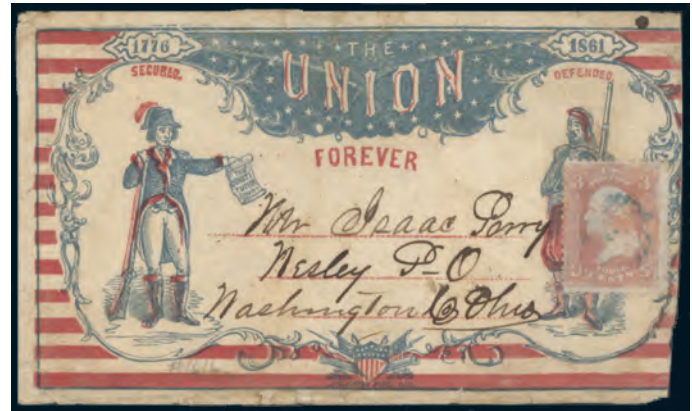 1776 THE 1861
SECURED. UNION DEFENDED.
FOREVER
Mr Isaac Perry
Wesley P-O
Washington Co Ohio